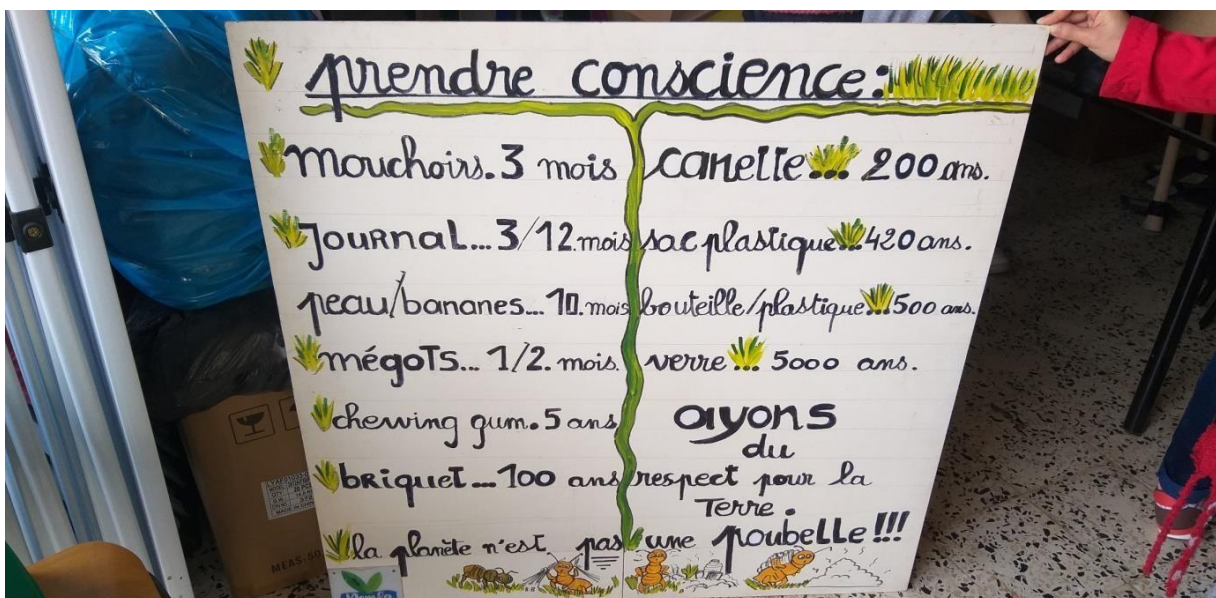 prendre conscience:
mouchoirs. 3 mois
JOURNAL... 3/12. mois
peau/bananes... 10. mois
mégots... 1/2. mois.
chewing gum. 5 ans
briquet... 100 ans
canette... 200 ans.
sac plastique... 420 ans.
bouteille/plastique... 500 ans.
verre... 5000 ans.
ayons
du
respect pour la
Terre.
la planète n'est pas une poubelle!!!
MEAS-50